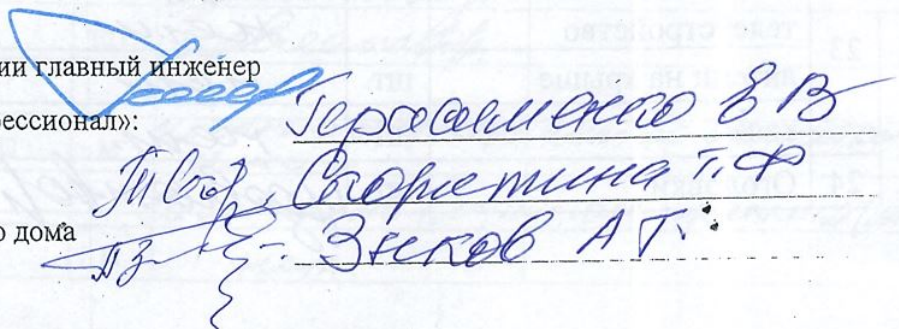 ии главный инженер
ессионал»: Герасименко Е В
Скорятина Т. Ф
о дома Зыков А Г.